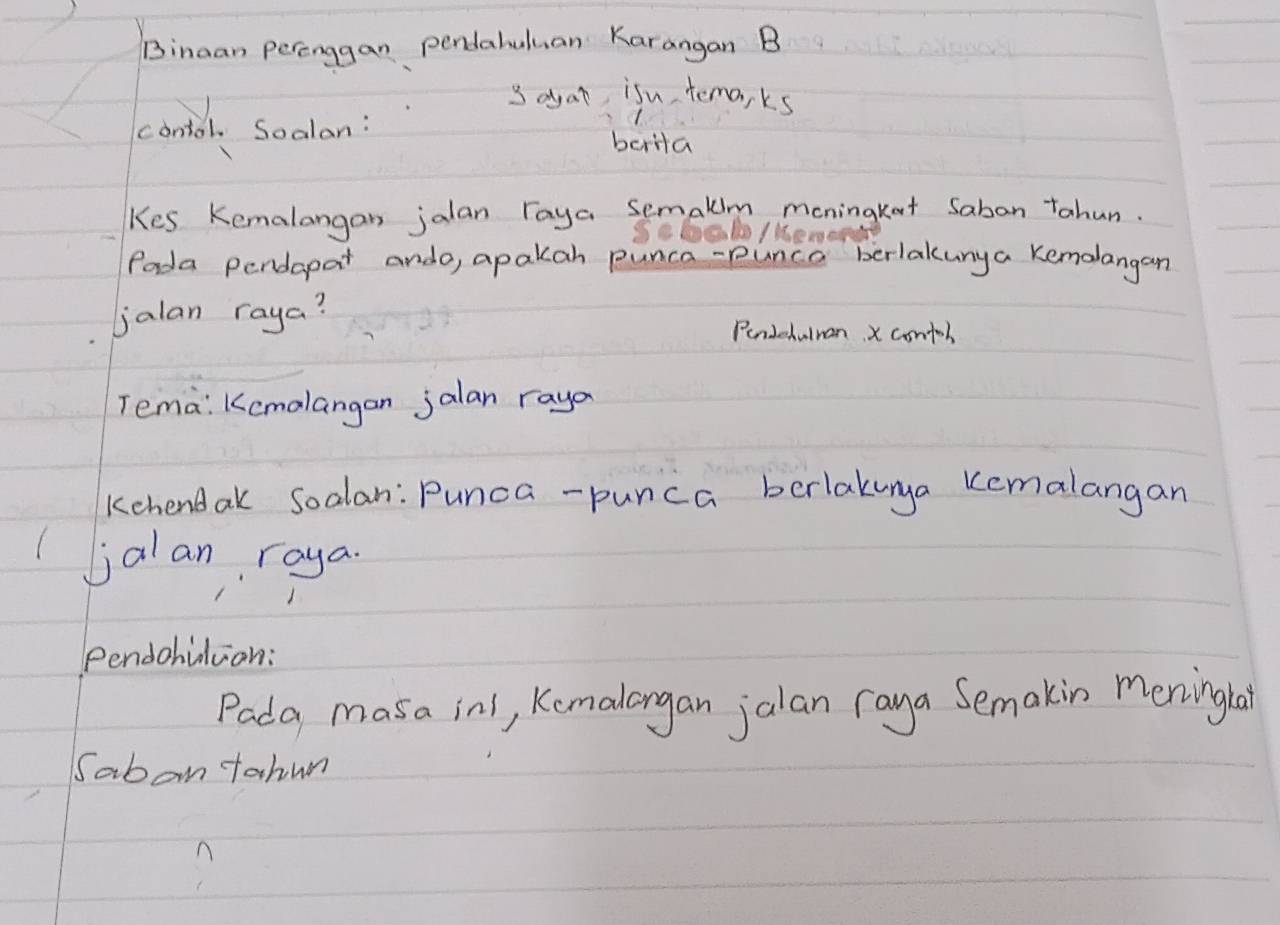 Binaan perenggan pendahuluan Karangan B
3 ayat, isu, tema, ks
contoh Soalan:
berita
Kes Kemalangan jalan raya semakim meningkat saban tahun.
Sebab/Kenapa
Pada pendapat anda, apakah punca-punca berlakunya Kemalangan
jalan raya?
Pendahuluan x contoh
Tema: Kemalangan jalan raya
Kehendak Soalan: Punca-punca berlakunya Kemalangan
jalan raya.
Pendahuluan:
Pada masa ini, Kemalangan jalan raya Semakin Meningkat
Saban tahun